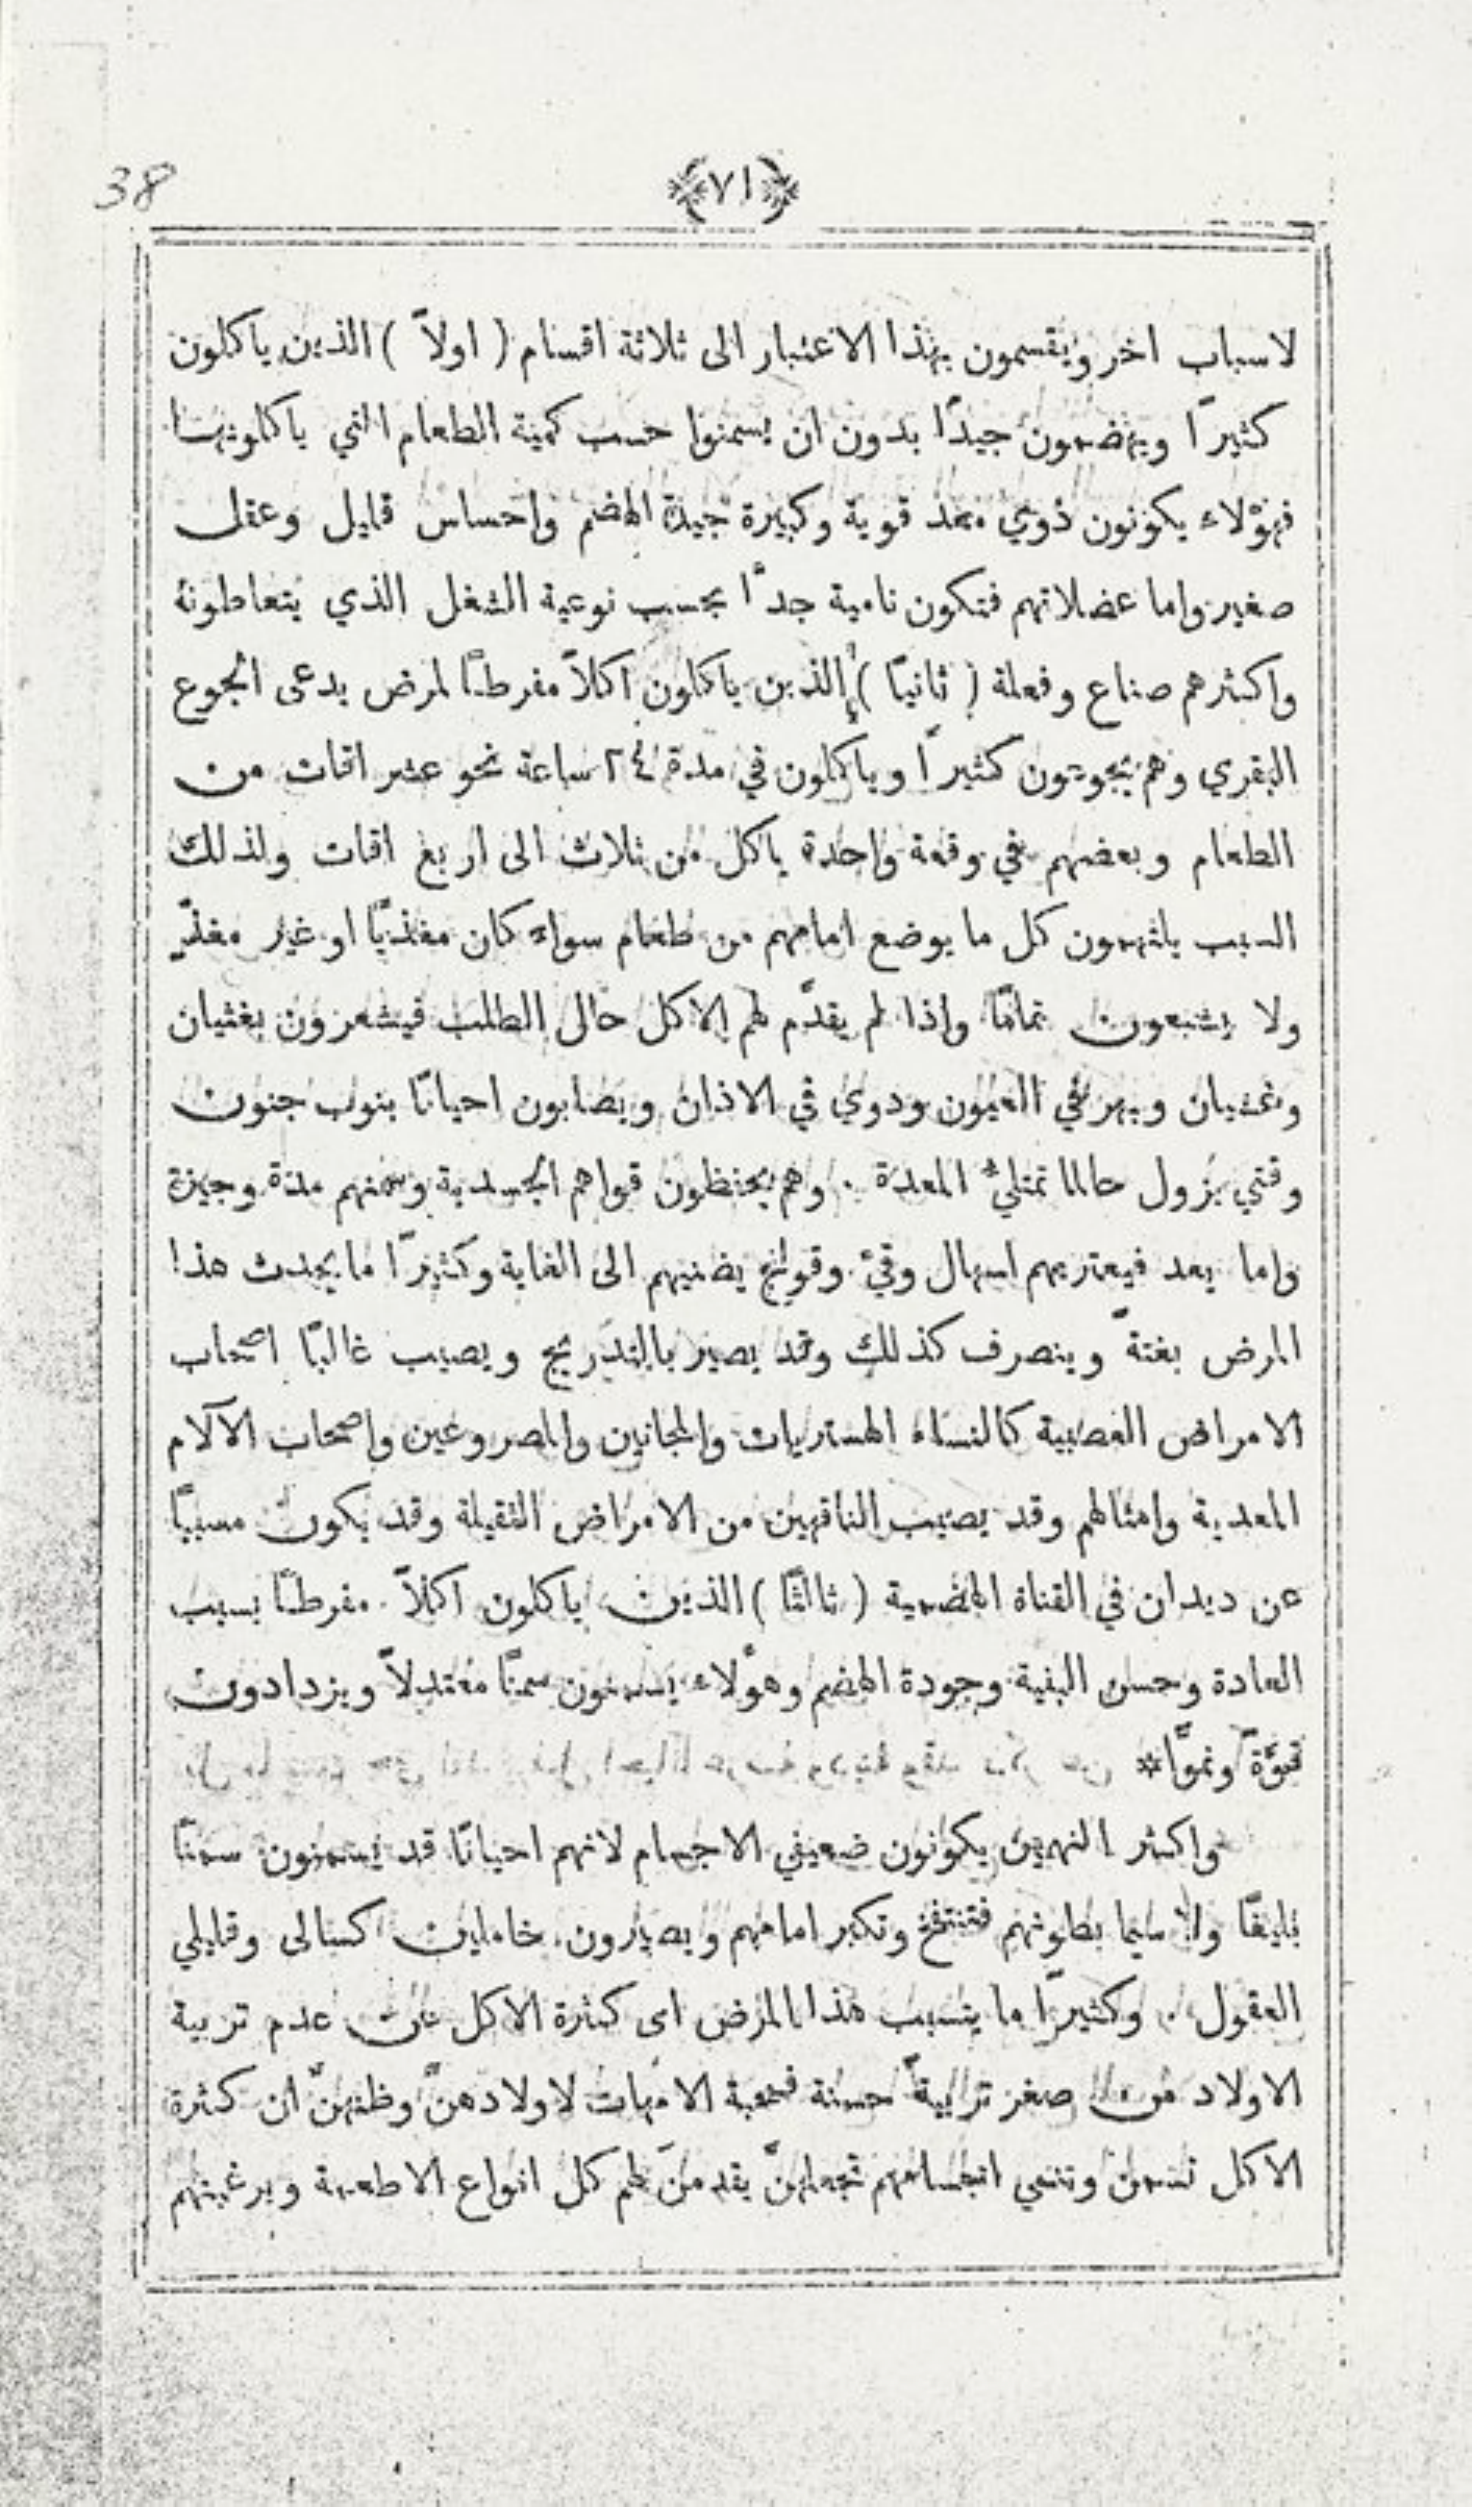 38
﴿٧١﴾
لاسباب اخر ويقسمون بهذا الاعتبار الى ثلاثة اقسام ( اولاً ) الذين ياكلون
كثيرًا ويهضمون جيدًا بدون ان يسمنوا حسب كمية الطعام التي ياكلونها
فهؤلاء يكونون ذوي معد قوية وكبيرة جيدة الهضم واحساس قليل وعقل
صغير واما عضلاتهم فتكون نامية جدًا بحسب نوعية الشغل الذي يتعاطونهُ
واكثرهم صناع وفعلة ( ثانيًا ) الذين ياكلون اكلاً مفرطًا لمرض يدعى الجوع
البقري وهم يجوعون كثيرًا وياكلون في مدة ٢٤ ساعة نحو عشر اقات من
الطعام وبعضهم في وقعة واحدة ياكل من ثلاث الى اربع اقات ولذلك
السبب يلتهمون كل ما يوضع امامهم من طعام سواء كان مغذيًا او غير مغذٍّ
ولا يشبعون تمامًا واذا لم يقدَّم لهم الاكل حالى الطلب فيشعرون بغثيان
وغشيان وبهر في العيون ودوي في الاذان ويصابون احيانًا بنوب جنون
وقتي يزول حالما تمتلئ المعدة . وهم يحفظون قواهم الجسدية وسمنهم مدة وجيزة
واما بعد فيعتريهم اسهال وقيء وقولنج يضنيهم الى الغاية وكثيرًا ما يحدث هذا
المرض بغتةً وينصرف كذلك وقد يصير بالتدريج ويصيب غالبًا اصحاب
الامراض العصبية كالنساء الهستريات والمجانين والمصروعين واصحاب الآلام
المعدية وامثالهم وقد يصيب الناقهين من الامراض الثقيلة وقد يكون مسببًا
عن ديدان في القناة الهضمية ( ثالثًا ) الذين ياكلون اكلاً مفرطًا بسبب
العادة وحسن البنية وجودة الهضم وهؤلاء يسمنون سمنًا معتدلاً ويزدادون
قوَّةً ونموًّا *
واكثر النهمين يكونون ضعيفي الاجسام لانهم احيانًا قد يسمنون سمنًا
بليغًا ولا سيما بطونهم فتنتفخ وتكبر امامهم ويصيرون خاملين كسالى وقليلي
العقول . وكثيرًا ما يتسبب هذا المرض اى كثرة الاكل عن عدم تربية
الاولاد من صغر تربيةً حسنة فمحبة الامهات لاولادهنَّ وظنهنَّ ان كثرة
الاكل تسمن وتنمي اجسامهم تجعلهنَّ يقدمنَ لهم كل انواع الاطعمة ويرغبنهم